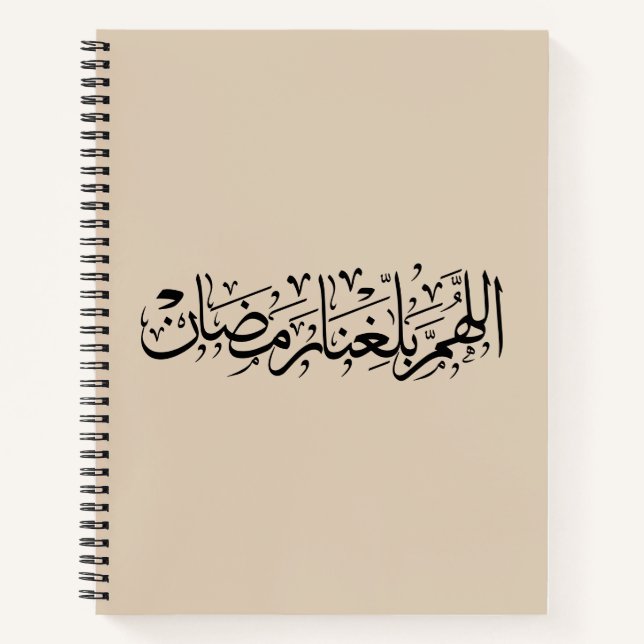 اللَّهُمَّ بَلِّغْنَا رَمَضَان